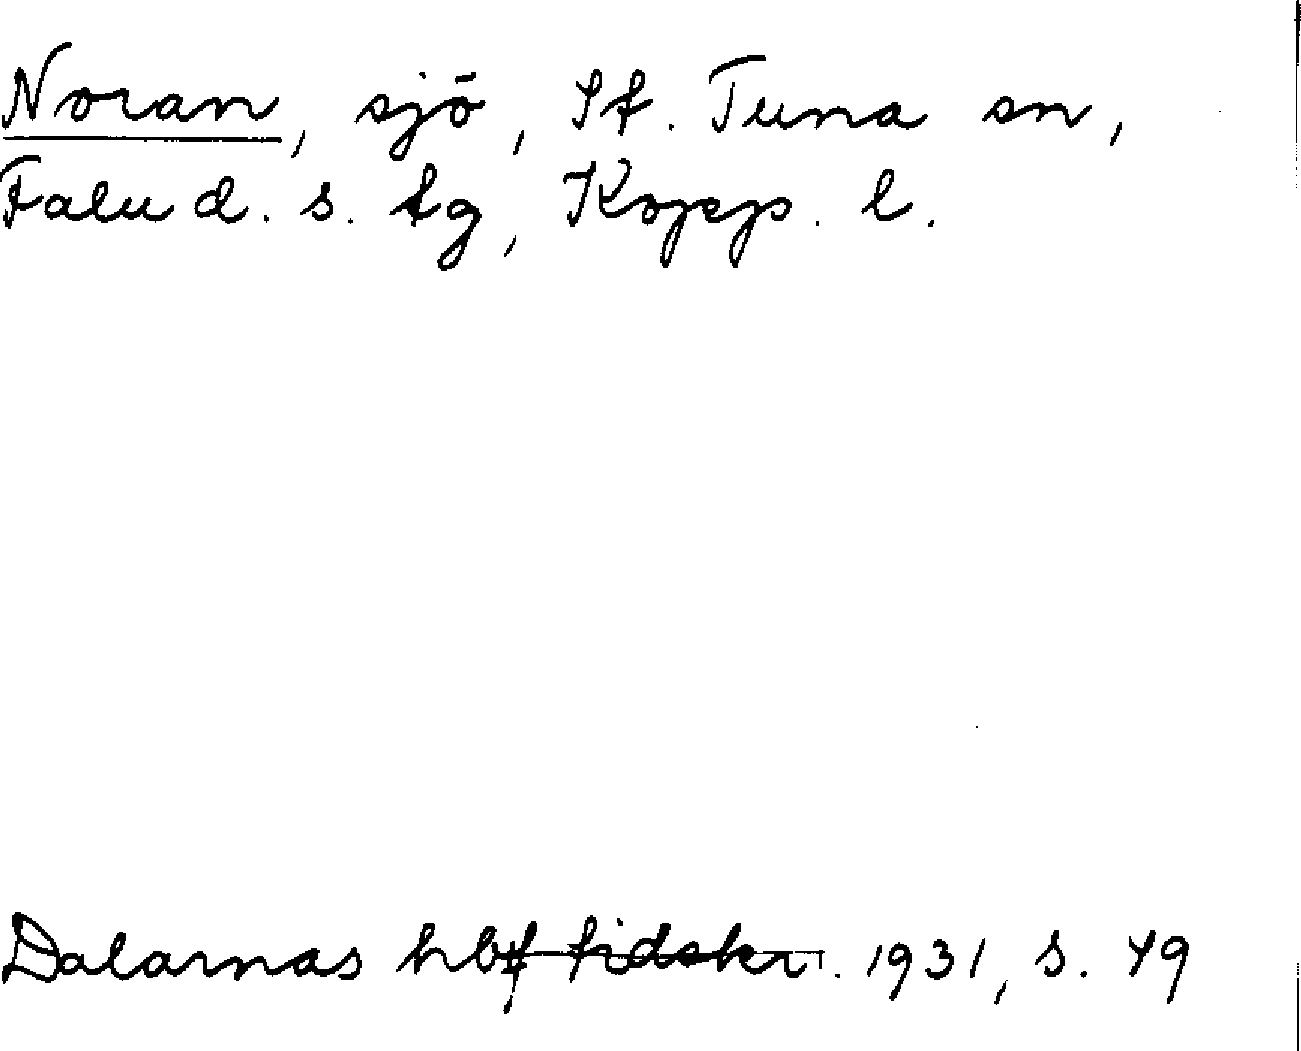 Noran, sjö, St. Tuna sn,
Falu d. s. tg, Kopp. l.
Dalarnas hbf tidskr. 1931, s. 49